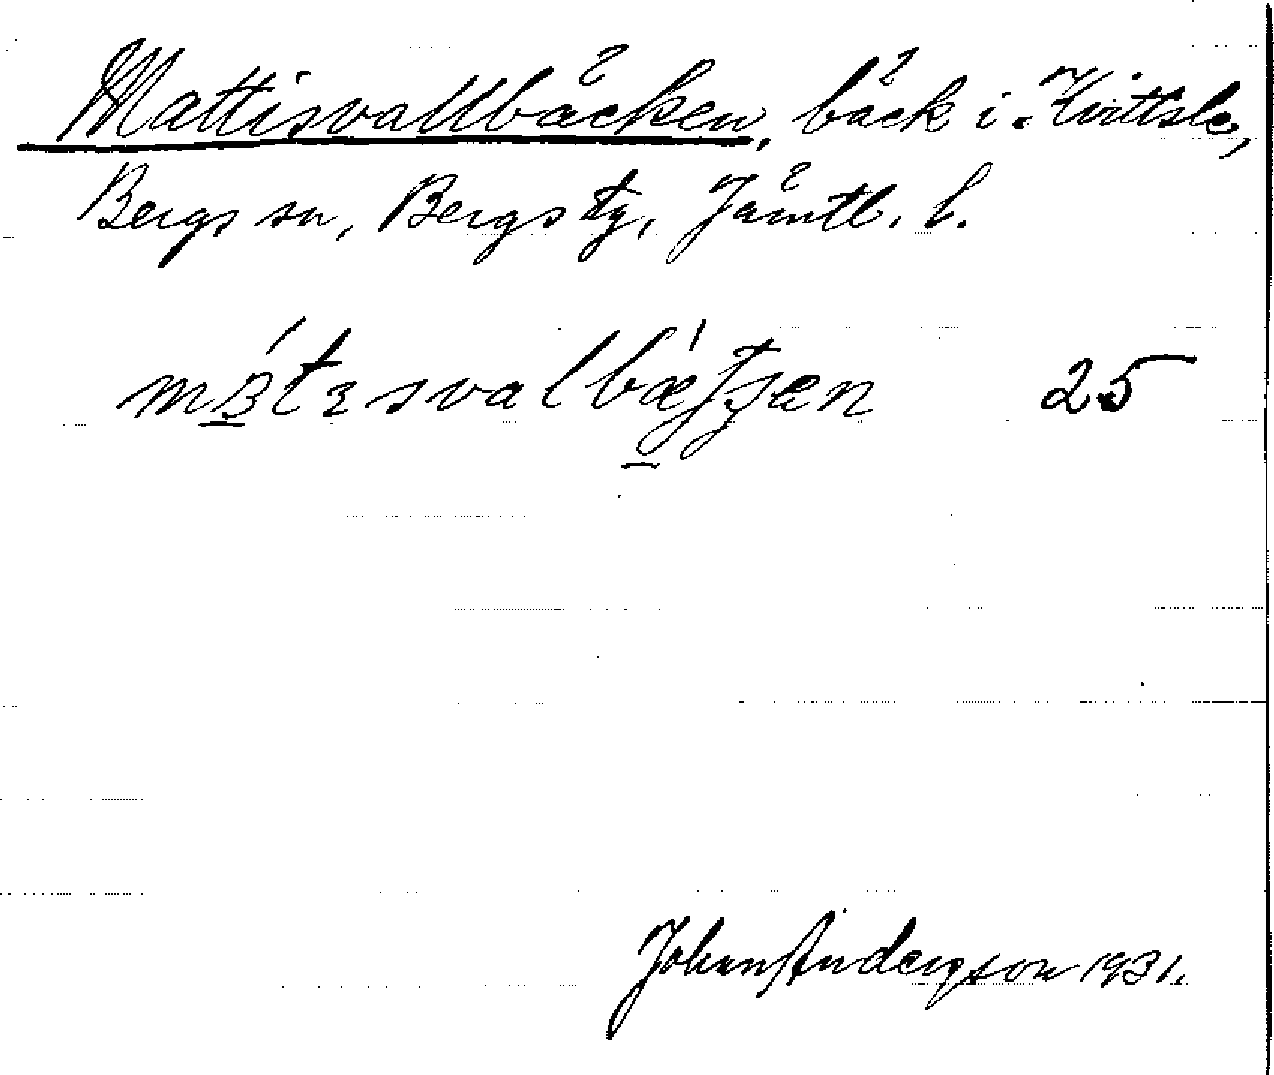 Mattisvallbäcken, bäck i Kvittsle,
Bergs sn, Bergs tg, Jämtl. l.
25
Johan Anderson 1931.